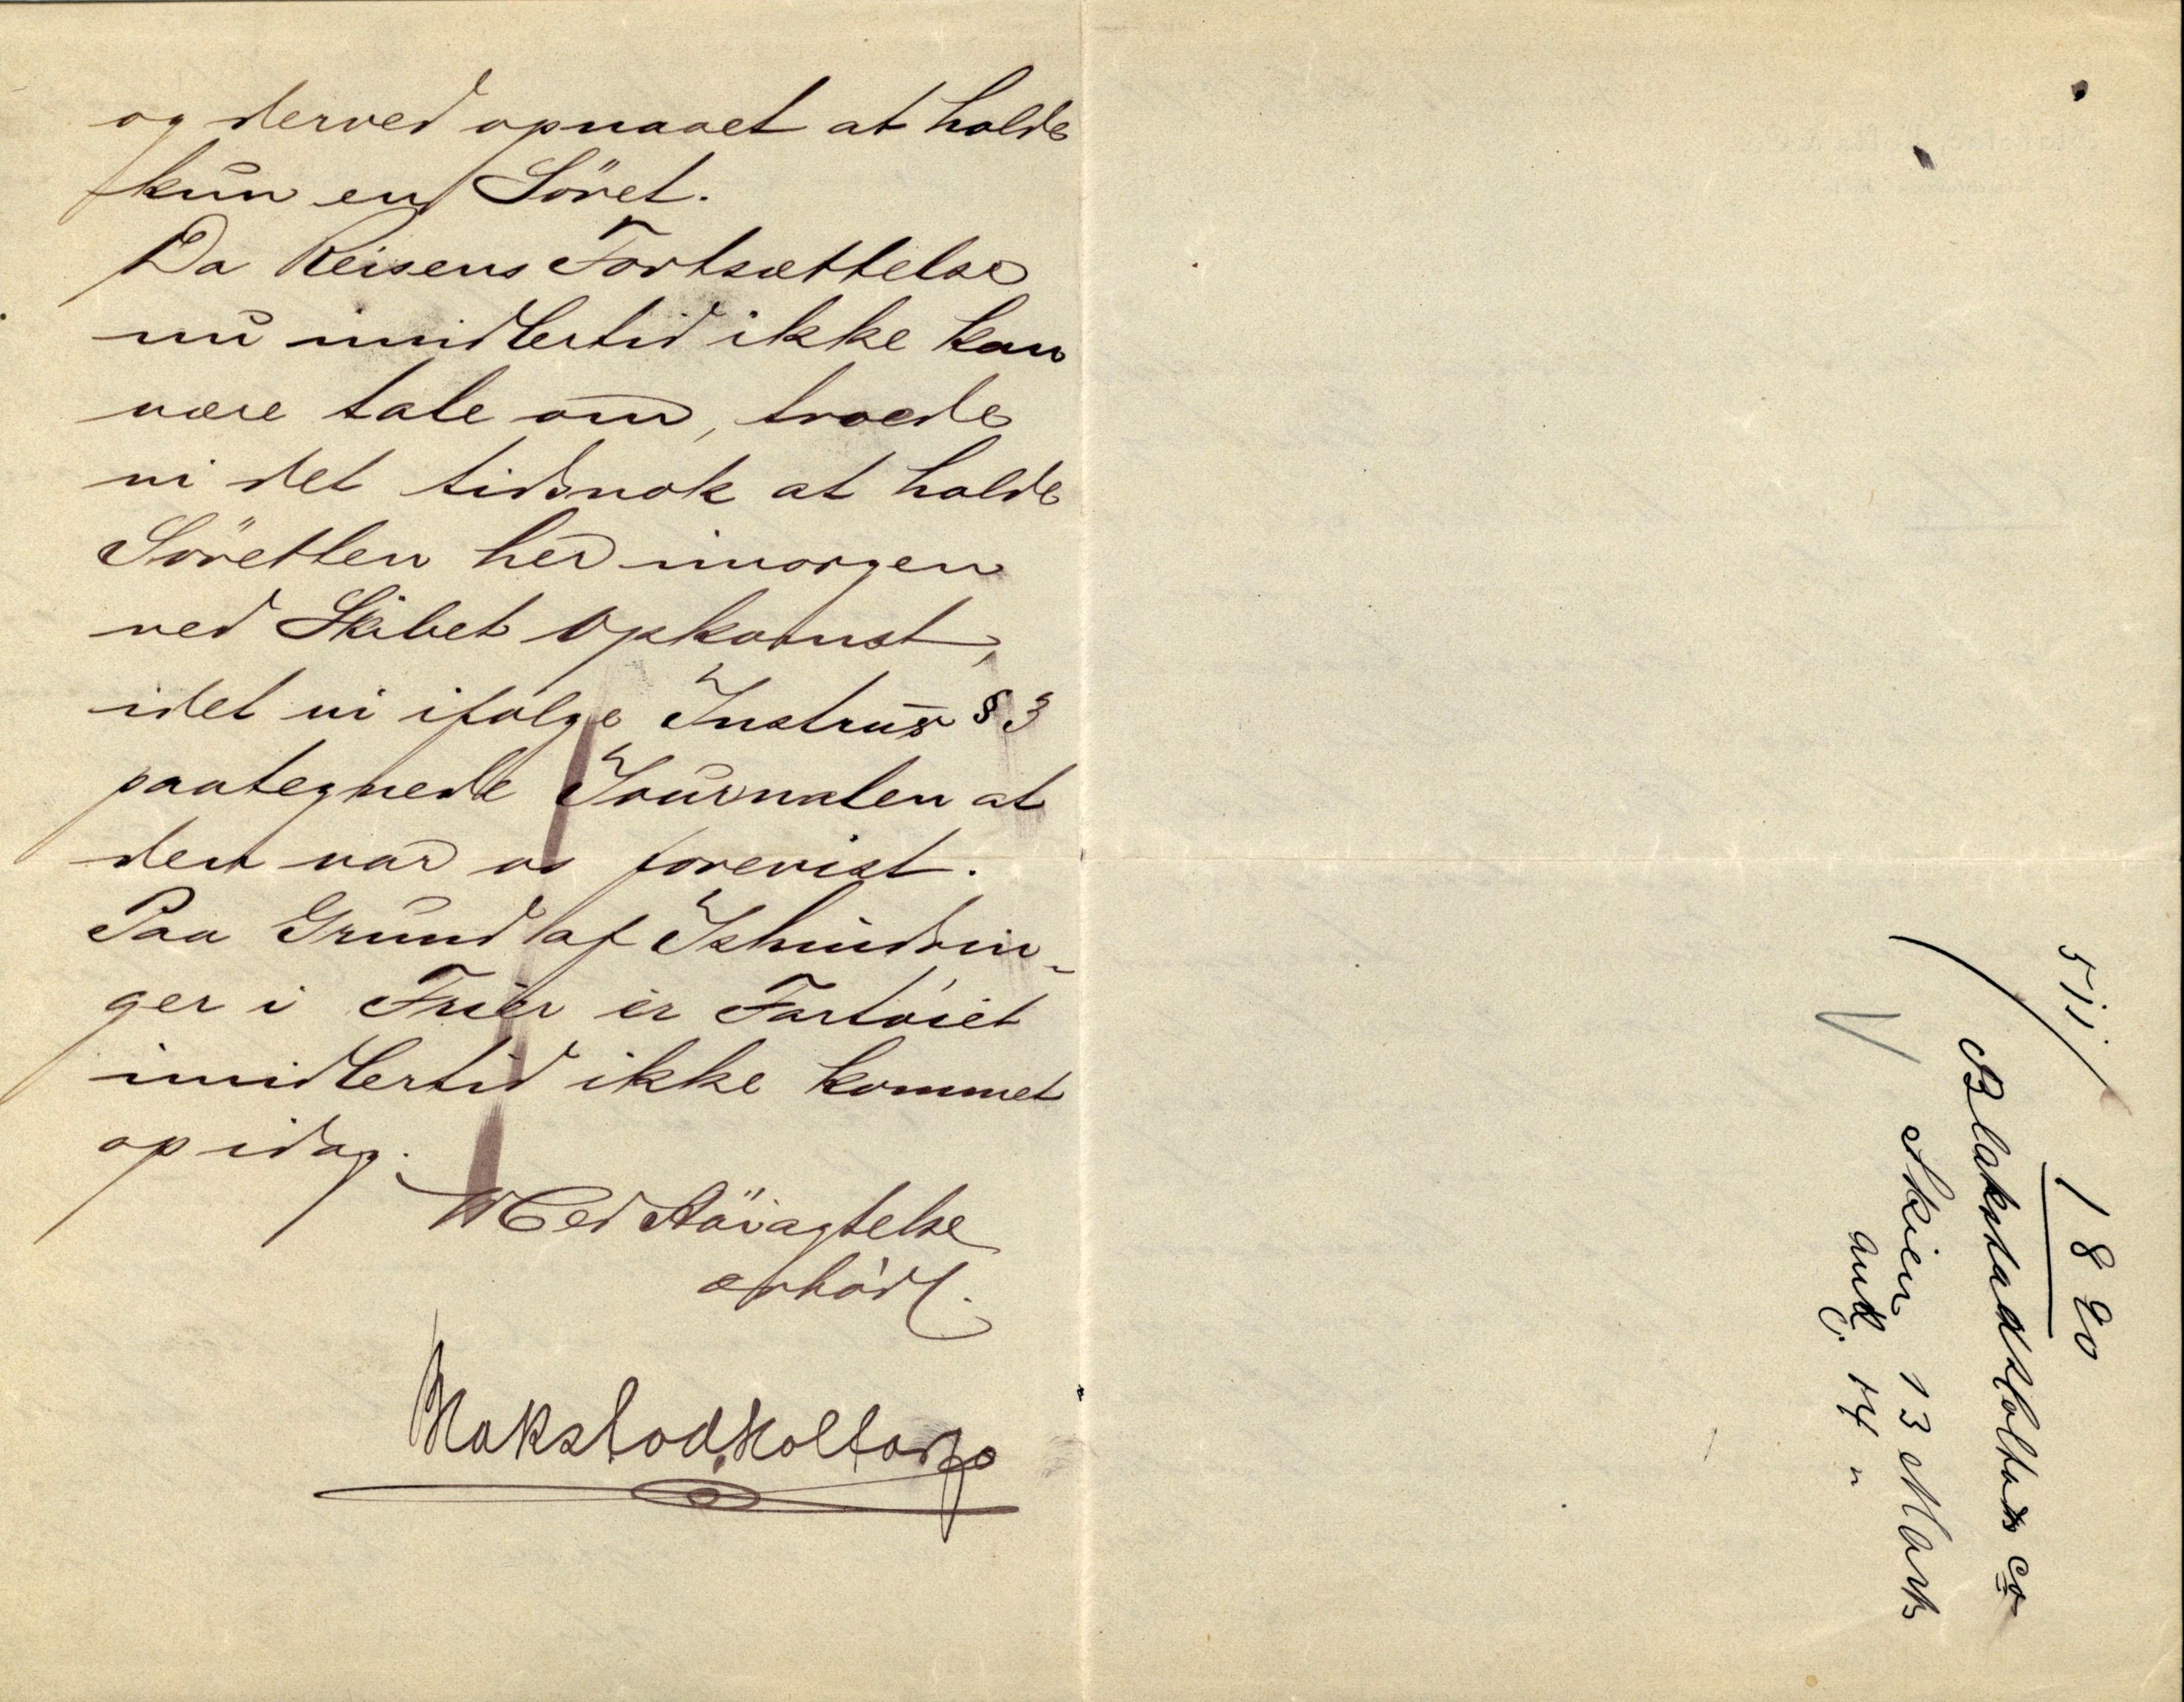 og derved opnaaet at holde
kun en Söret.
Da Reisens Fortsættelse
nu imidlertid ikke kan
være tale om, troede
vi det tidsnok at holde
Söretten her imorgen
ved Skibet Opkomst,
idet vi ifølge Instrux § 3
paategnede Journalen at
den var os forevist.
Paa Grund af Ishindrin-
ger i Frier er Fartöiet
imidlertid ikke kommet
op idag.
Med Höiagtelse
ærböd.
Blakstad Holta & Co
1890
Blakstad Holta & Co
Skien 13 Marts
ank. 14 "